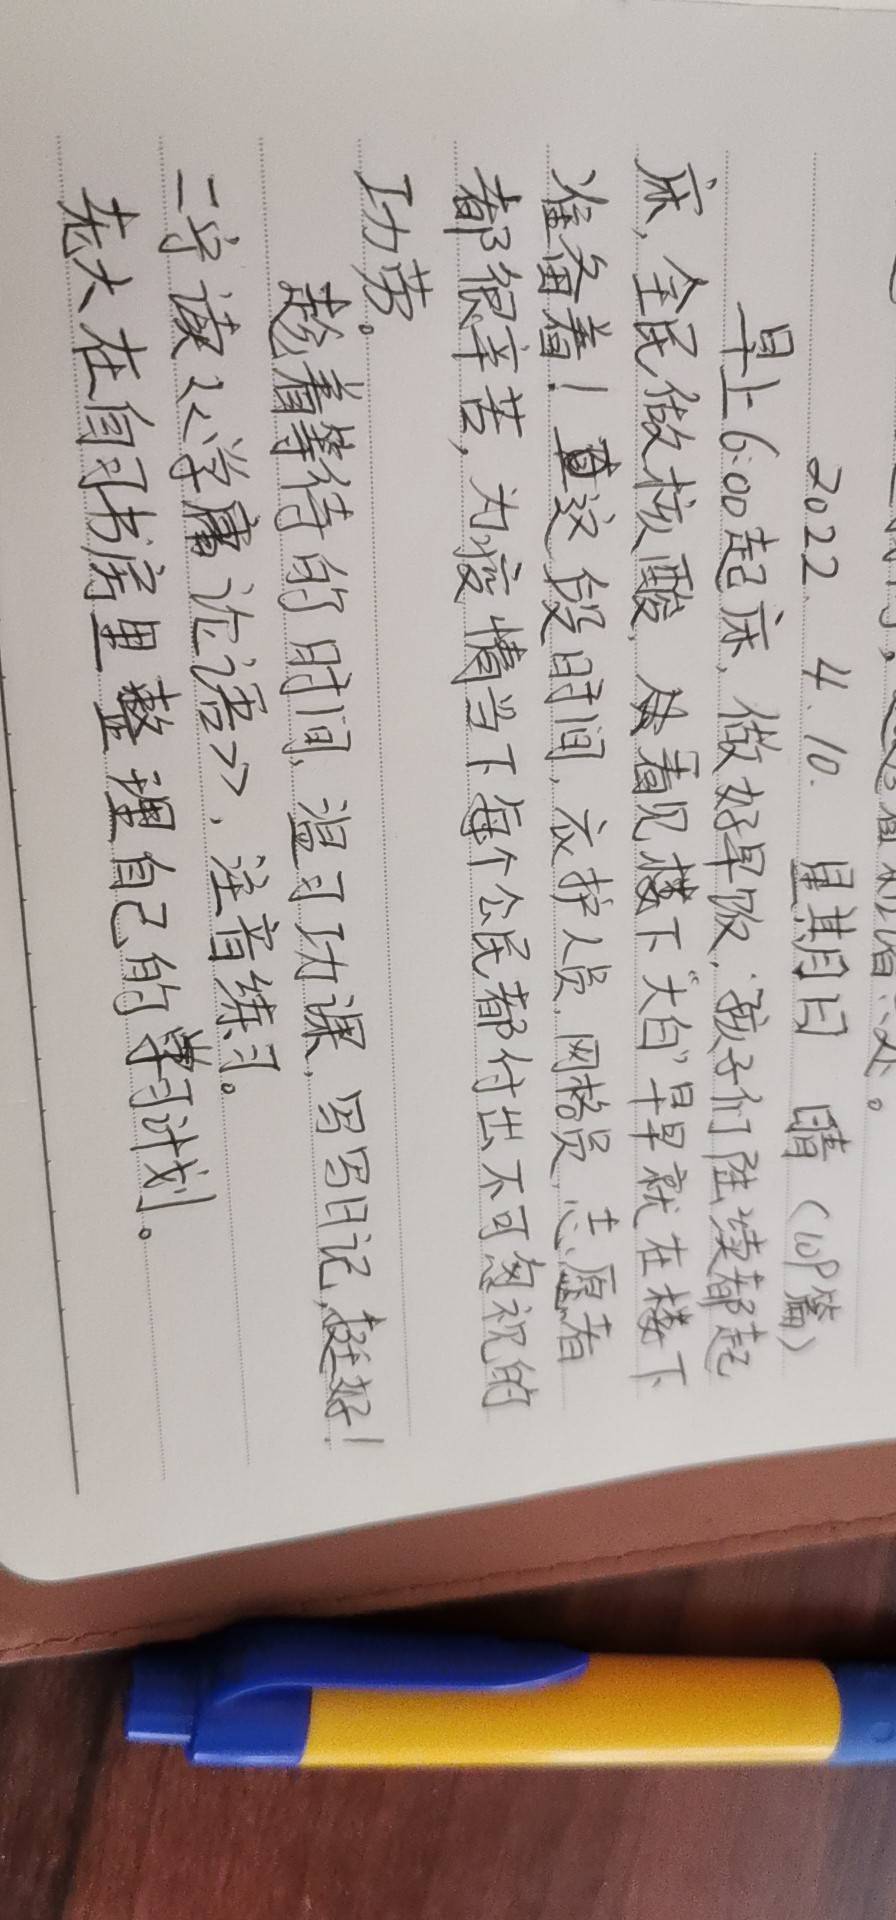 2022. 4. 10. 星期日 晴（UP篇）
早上6:00起床，做好早饭，孩子们陆续都起
床，全民做核酸，看见楼下“大白”早早就在楼下
准备着！这段时间，衣护人员，网格员，志愿者
都很辛苦，为疫情当下每个公民都付出不可忽视的
功劳。
趁着等待的时间，温习功课，写写日记，挺好！
二宇读《学庸论语》，注音练习。
老大在自习书房里整理自己的学习计划。